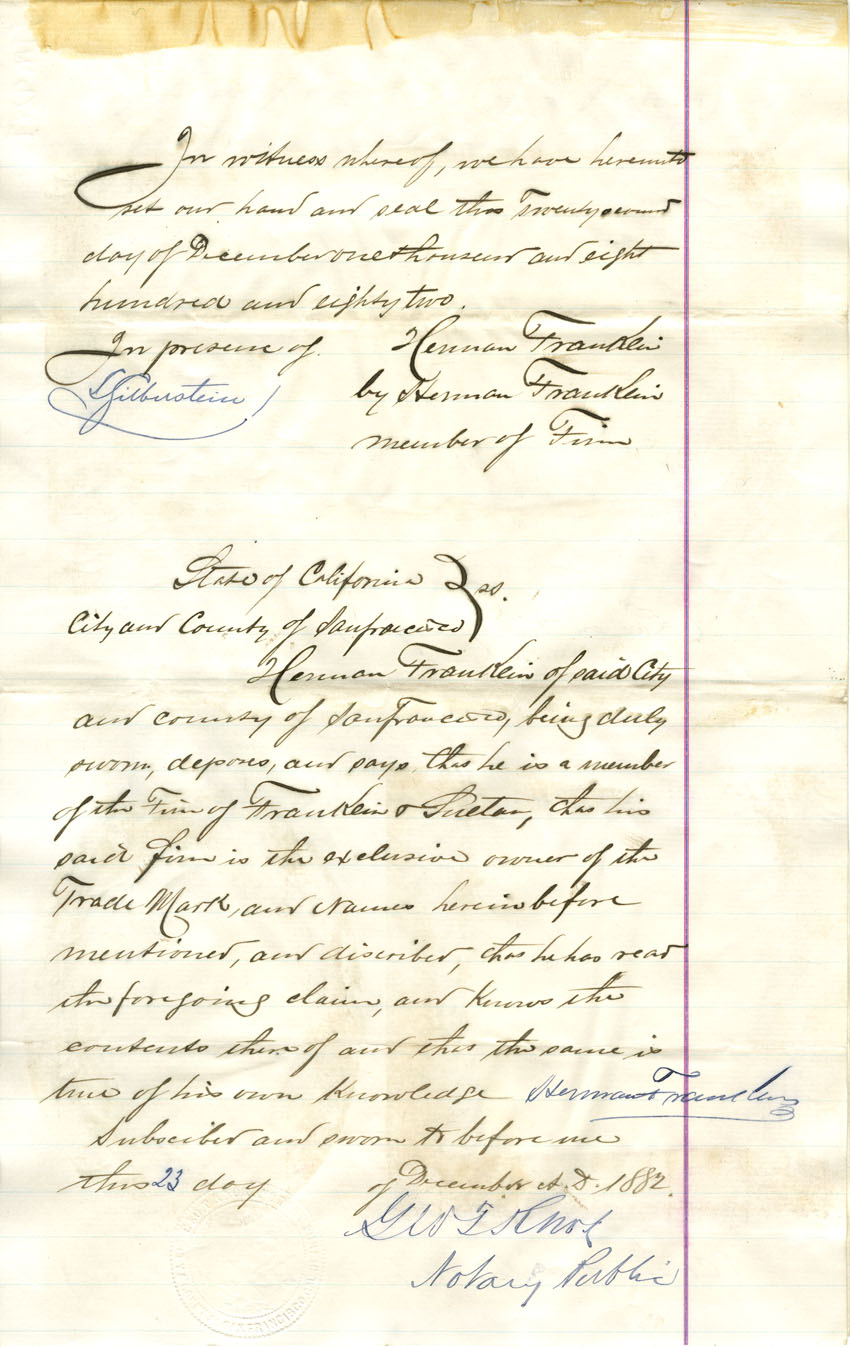 In witness whereof, we have hereunto
set our hand and seal this Twenty second
day of December one thousand and eight
hundred and eighty two.
In presence of Herman Franklin
Silberstein by Herman Franklin
member of Firm
State of California } ss.
City and County of Sanfrancisco
Herman Franklin of said City
and county of SanFrancisco, being duly
sworn, deposes, and says, that he is a member
of the Firm of Franklin &
that his
said firm is the exclusive owner of the
Trade Mark, and Names herein before
mentioned, and discribed, that he has read
the foregoing claim, and Knows the
contents thereof and that the same is
true of his own Knowledge Herman Franklin
Subscibed and sworn to before me
this 23 day of December A.D. 1882.
Geo T Knox
Notary Public